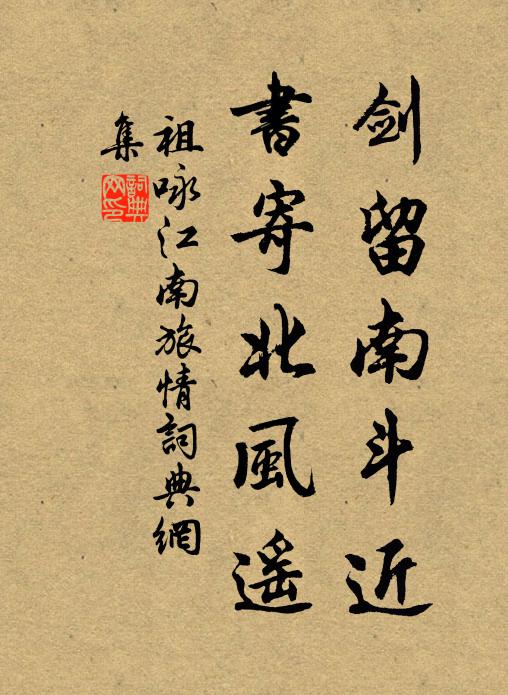 剑留南斗近
書寄北風遥
祖咏江南旅情詞典網
集
詞典网印